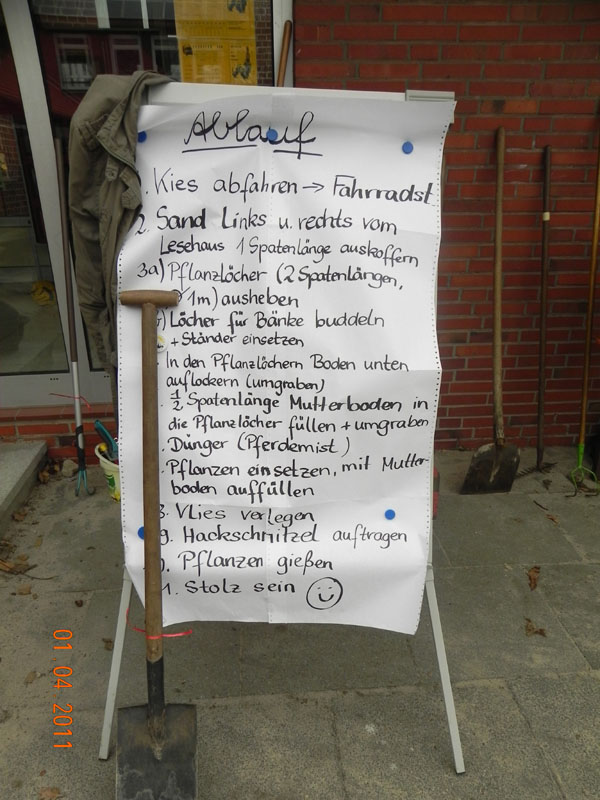 Ablauf
. Kies abfahren → Fahrradst
2. Sand Links u. rechts vom
Lesehaus 1 Spatenlänge auskoffern
3a) Pflanzlöcher (2 Spatenlängen,
1m) ausheben
) Löcher für Bänke buddeln
+ Ständer einsetzen
In den Pflanzlöchern Boden unten
auflockern (umgraben)
. ½ Spatenlänge Mutterboden in
die Pflanzlöcher füllen + umgraben
. Dünger (Pferdemist)
. Pflanzen einsetzen, mit Mutter-
boden auffüllen
8. Vlies verlegen
9. Hackschnitzel auftragen
. Pflanzen gießen
1. Stolz sein
01 04 2011